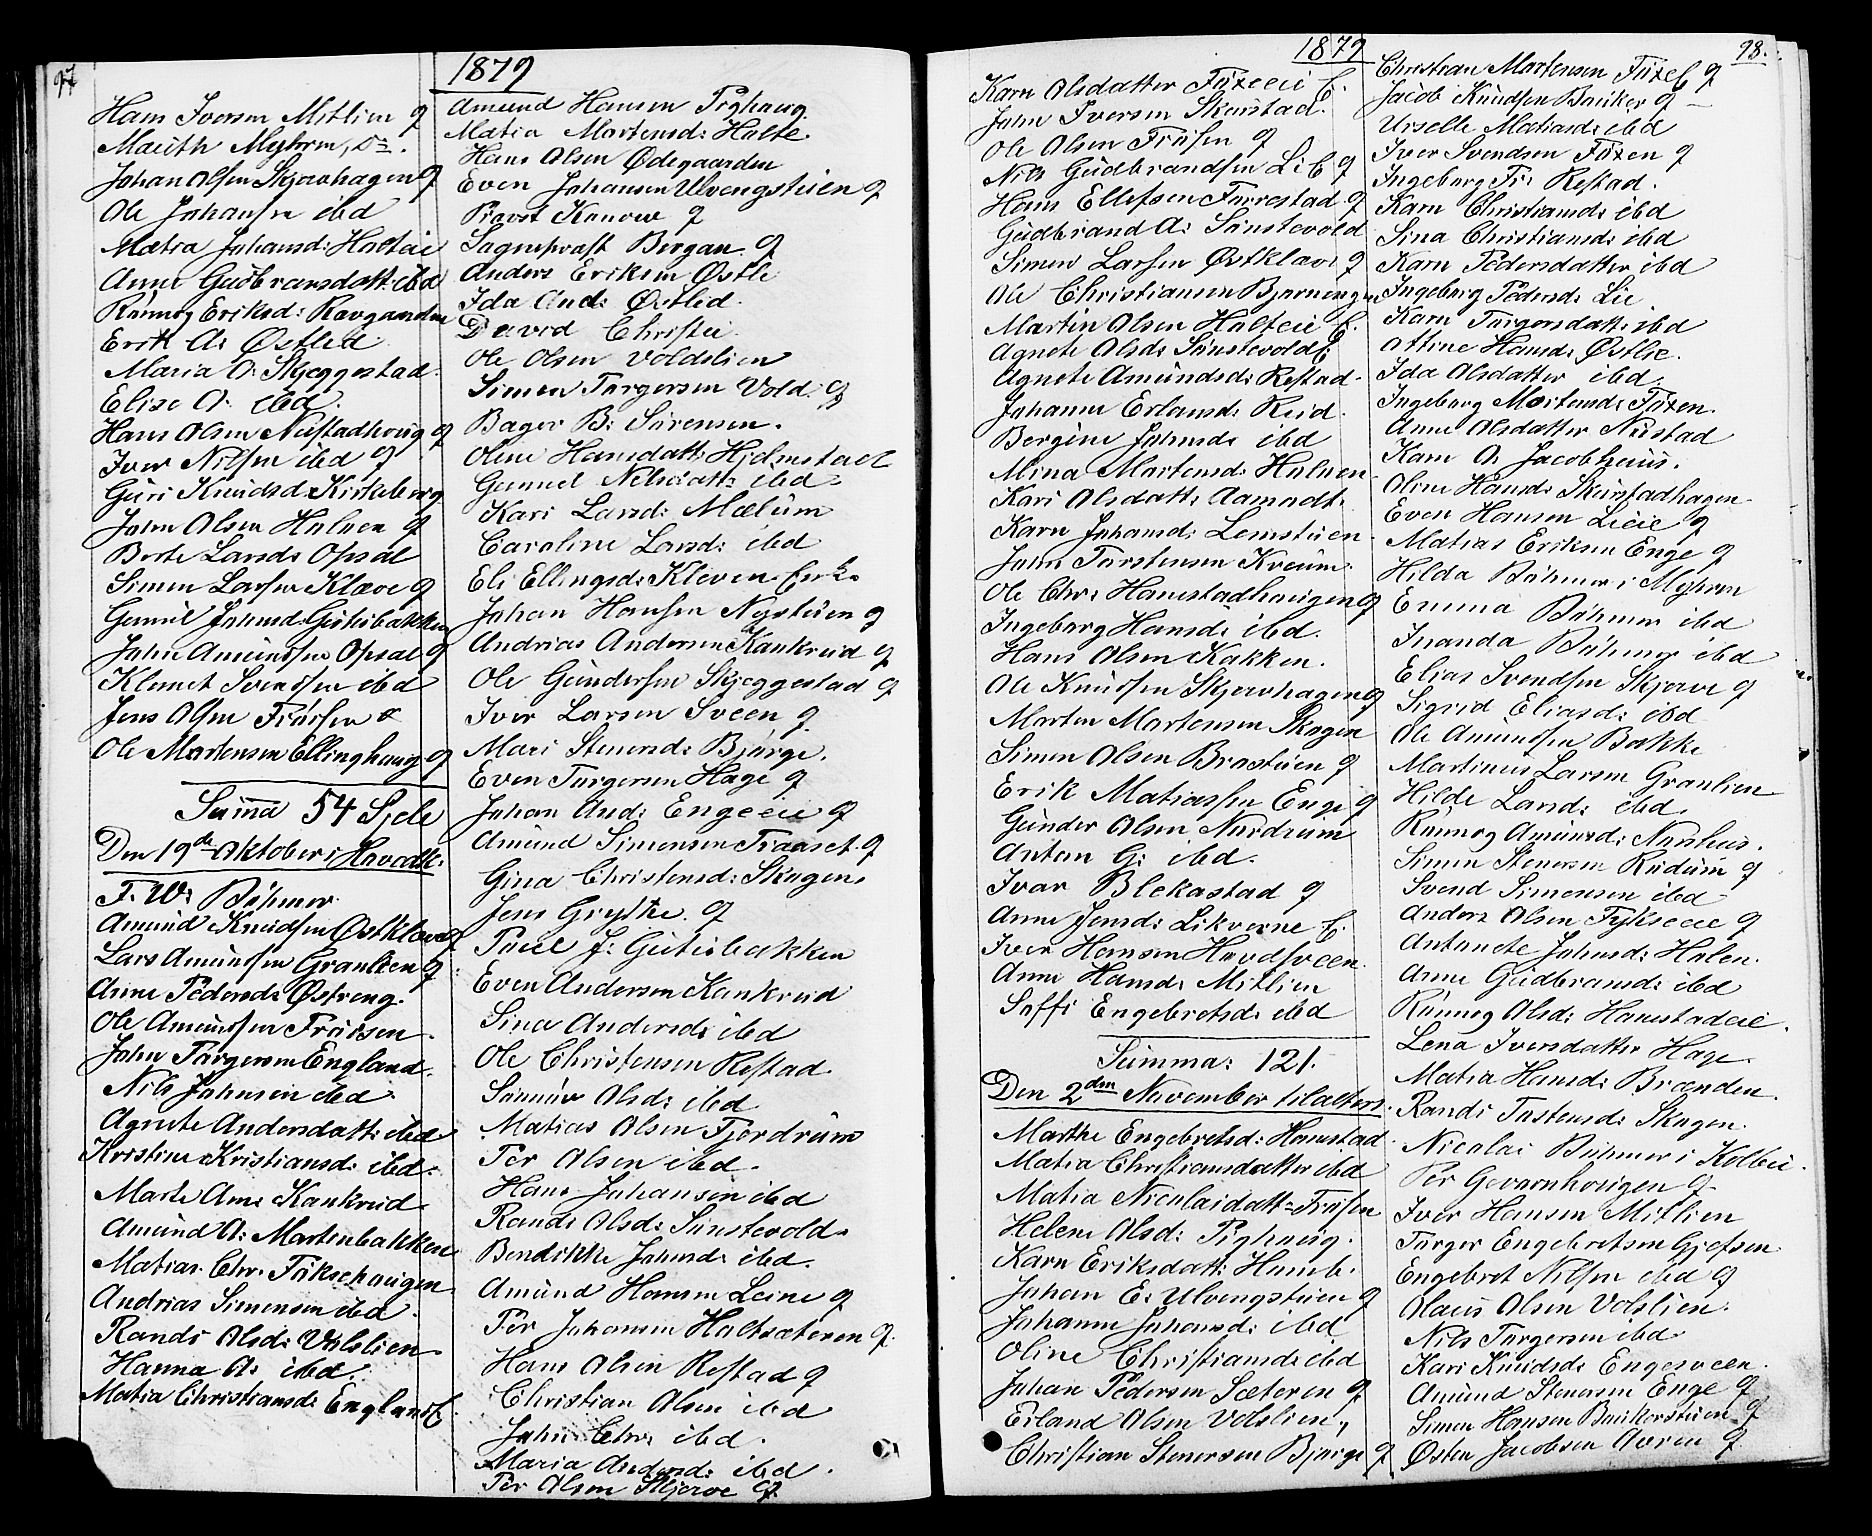 97
1879
Hans Iversen Mitlien q
Marith Myhren, Do.
Johan Olsen Skjervhagen q
Ole Johansen ibd
Matia Johansd: Holteie
Anne Gudbransdatt: ibd
Rønnog Eriksd:
Erik A: Østlid
Maria O. Skjeggestad
Elise O. ibd
Hans Olsen Nustadhoug q
Iver Nilsen ibd q
Guri Knudsd. Kirkeberg
John Olsen Halven q
Berte Larsd: Opsal
Simen Larsen Klæve q
Gunil Johnsd: Gutubakken
John Amundsen Opsal q
Klemet Svendsen ibd
Jens Olsen Frøisen
Ole Martensen Ellinghaug q
Summa 54 Sjele
Den 19de Oktober i Hovedk:
F. W: Bøhmer
Amund Knudsen Østklæve q
Lars Amundsen Granlien q
Anne Pedersd: Østreng.
Ole Amundsen Frøisen.
John Torgersen England.
Nils Johnsen ibd.
Agnete Andersdatt: ibd
Kristine Kristiansd: ibd.
Marte Am: Kankrud
Amund A: Martinbakken
Matias Chr. Fyksehaugen
Andrias Simensen ibd.
Randi Olsd: Volslien
Hanna O. ibd.
Matia Christiansd: England E.
Amund Hansen Pighaug.
Matia Martensd: Holte
Hans Olsen Ødegaarden
Even Johansen Ulvengstuen q
Provst Kanow q
Sogneprest Bergan. q
Anders Eriksen Østli
Ida And: Østlid.
David Christie
Ole Olsen Voldslien
Simen Torgersen Vold. q
Bager B: Sørensen.
Oline Hansdatt: Hjelmstad
Gunnil Nilsdatt: ibd.
Kari Larsd: Mælum
Caroline Larsd: ibd
Eli Ellingsd: Kleven Enke
Johan Hansen Nystuen q
Andrias Andersen Kankrud q
Ole Gundersen Skjeggestad q
Iver Larsen Sveen q
Mari Stenersd: Bjørge.
Even Torgersen Hage q
Johan And: Engeeie q
Amund Simensen Traaset. q
Gina Christensd: Skogen.
Jens Grytte. q
Poul J: Gutubakken
Even Andersen Kankrud
Sina Andersd: ibd
Ole Christensen Rostad.
Sønnøv Olsd: ibd
Matias Olsen Fjerdrum
Per Olsen ibd.
Hans Johansen ibd
Randi Olsd: Sønstevold.
Bendikke Johnsd: ibd.
Amund Hansen Leine q
Per Johansen Holtsæteren q.
Hans Olsen Rostad q
Christian Olsen ibd
John Chr: ibd.
Maria Andersd: ibd.
Per Olsen Skjerve q.
1879
Karn Olsdatter Foxeeie E.
John Iversen Skurstad.
Ole Olsen Frøisen q
Nils Gudbrandsen Lie q
Hans Ellefsen Forrestad q
Gudbrand A: Sønstevold
Simen Larsen Østklæve q
Ole Christiansen Bjørnengen
Martin Olsen Holteeie E.
Agnete Olsd: Sønstevold E.
Agnete Amundsd: Rostad.
Johanne Erlansd: Rud.
Bergine Johnsd: ibd
Mina Martensd: Halven
Kari Olsdatt: Aamodt.
Karn Johansd: Lemstuen
John Torstensen Kreum.
Ole Chr: Hanestadhougen q
Ingeborg Hansd: ibd.
Hans Olsen Kakken.
Ole Knudsen Skjervhagen q
Morten Martensen Skogen
Simen Olsen Brostuen q
Erik Matiassen Enge q
Gunder Olsen Nordrum
Anton G: ibd.
Ivar Blekastad q
Anne Jensd: Likverne E.
Iver Hansen Hovdsveen.
Anne Hansd: Mitlien
Soffi Engebretsd: ibd
Summa: 121.
Den 2den November til Alters.
Marthe Engebretsd: Hanestad.
Matia Christiansdatter ibd
Matia Nicolaidatt: Frøisen
Helene Olsd: Pighaug.
Karn Eriksdatt: Humb.
Johan E: Ulvengstuen q
Johanne Johansd: ibd
Oline Christiansd: ibd
Johan Pedersen Sæteren q
Erland Olsen Volslien,
Christian Stenersen Bjørge q
98.
Christian Martensen Foxeeie q
Jacob Knudsen Bauker q
Urselle Matiasd: ibd
Iver Svendsen Foxen q
Ingeborg Fr: Rostad.
Karn Christiansd: ibd
Sina Christiansd: ibd
Karn Pedersdatter ibd
Ingeborg Pedersd: Lie
Karn Torgersdatt: ibd
Attine Hansd: Østlie.
Ida Olsdatter ibd.
Ingeborg Mortensd: Foxen.
Anne Olsdatter Nustad
Karn O. Jacobhuus.
Oline Hansd: Skurstadhagen
Even Hansen Lieie q
Matias Eriksen Enge q
Hilda Bøhmer i Myhren
Emma Bøhmer ibd
Inanda Bøhmer ibd
Elias Svendsen Skjerve q
Sigrid Eliasd: ibd
Ole Amundsen Bakke
Martinus Larsen Granlien
Hilde Larsd: ibd.
Rønnog Amundsd: Norshus.
Simen Stenersen Rudum q
Svend Simensen ibd
Anders Olsen Fykseeie q
Antonete Johnsd: Holen.
Anne Gudbransd: ibd
Rønnog Olsd: Hanestadeie.
Lena Iversdatter Hage.
Matia Hansd: Brænden.
Randi Tostensd: Skogen.
Nicolai Bøhmer i Kolbu.
Per Gevarnhougen q
Iver Hansen Mitlien
Torger Engebretsen Gjefsen
Engebret Nilsen ibd q
Olaus Olsen Volslien.
Nils Torgersen ibd
Kari Knudsd: Engesveen.
Amund Stenersen Enge q
Simen Hansen Baukerstuen q
Østen Jacobsen Avren q.